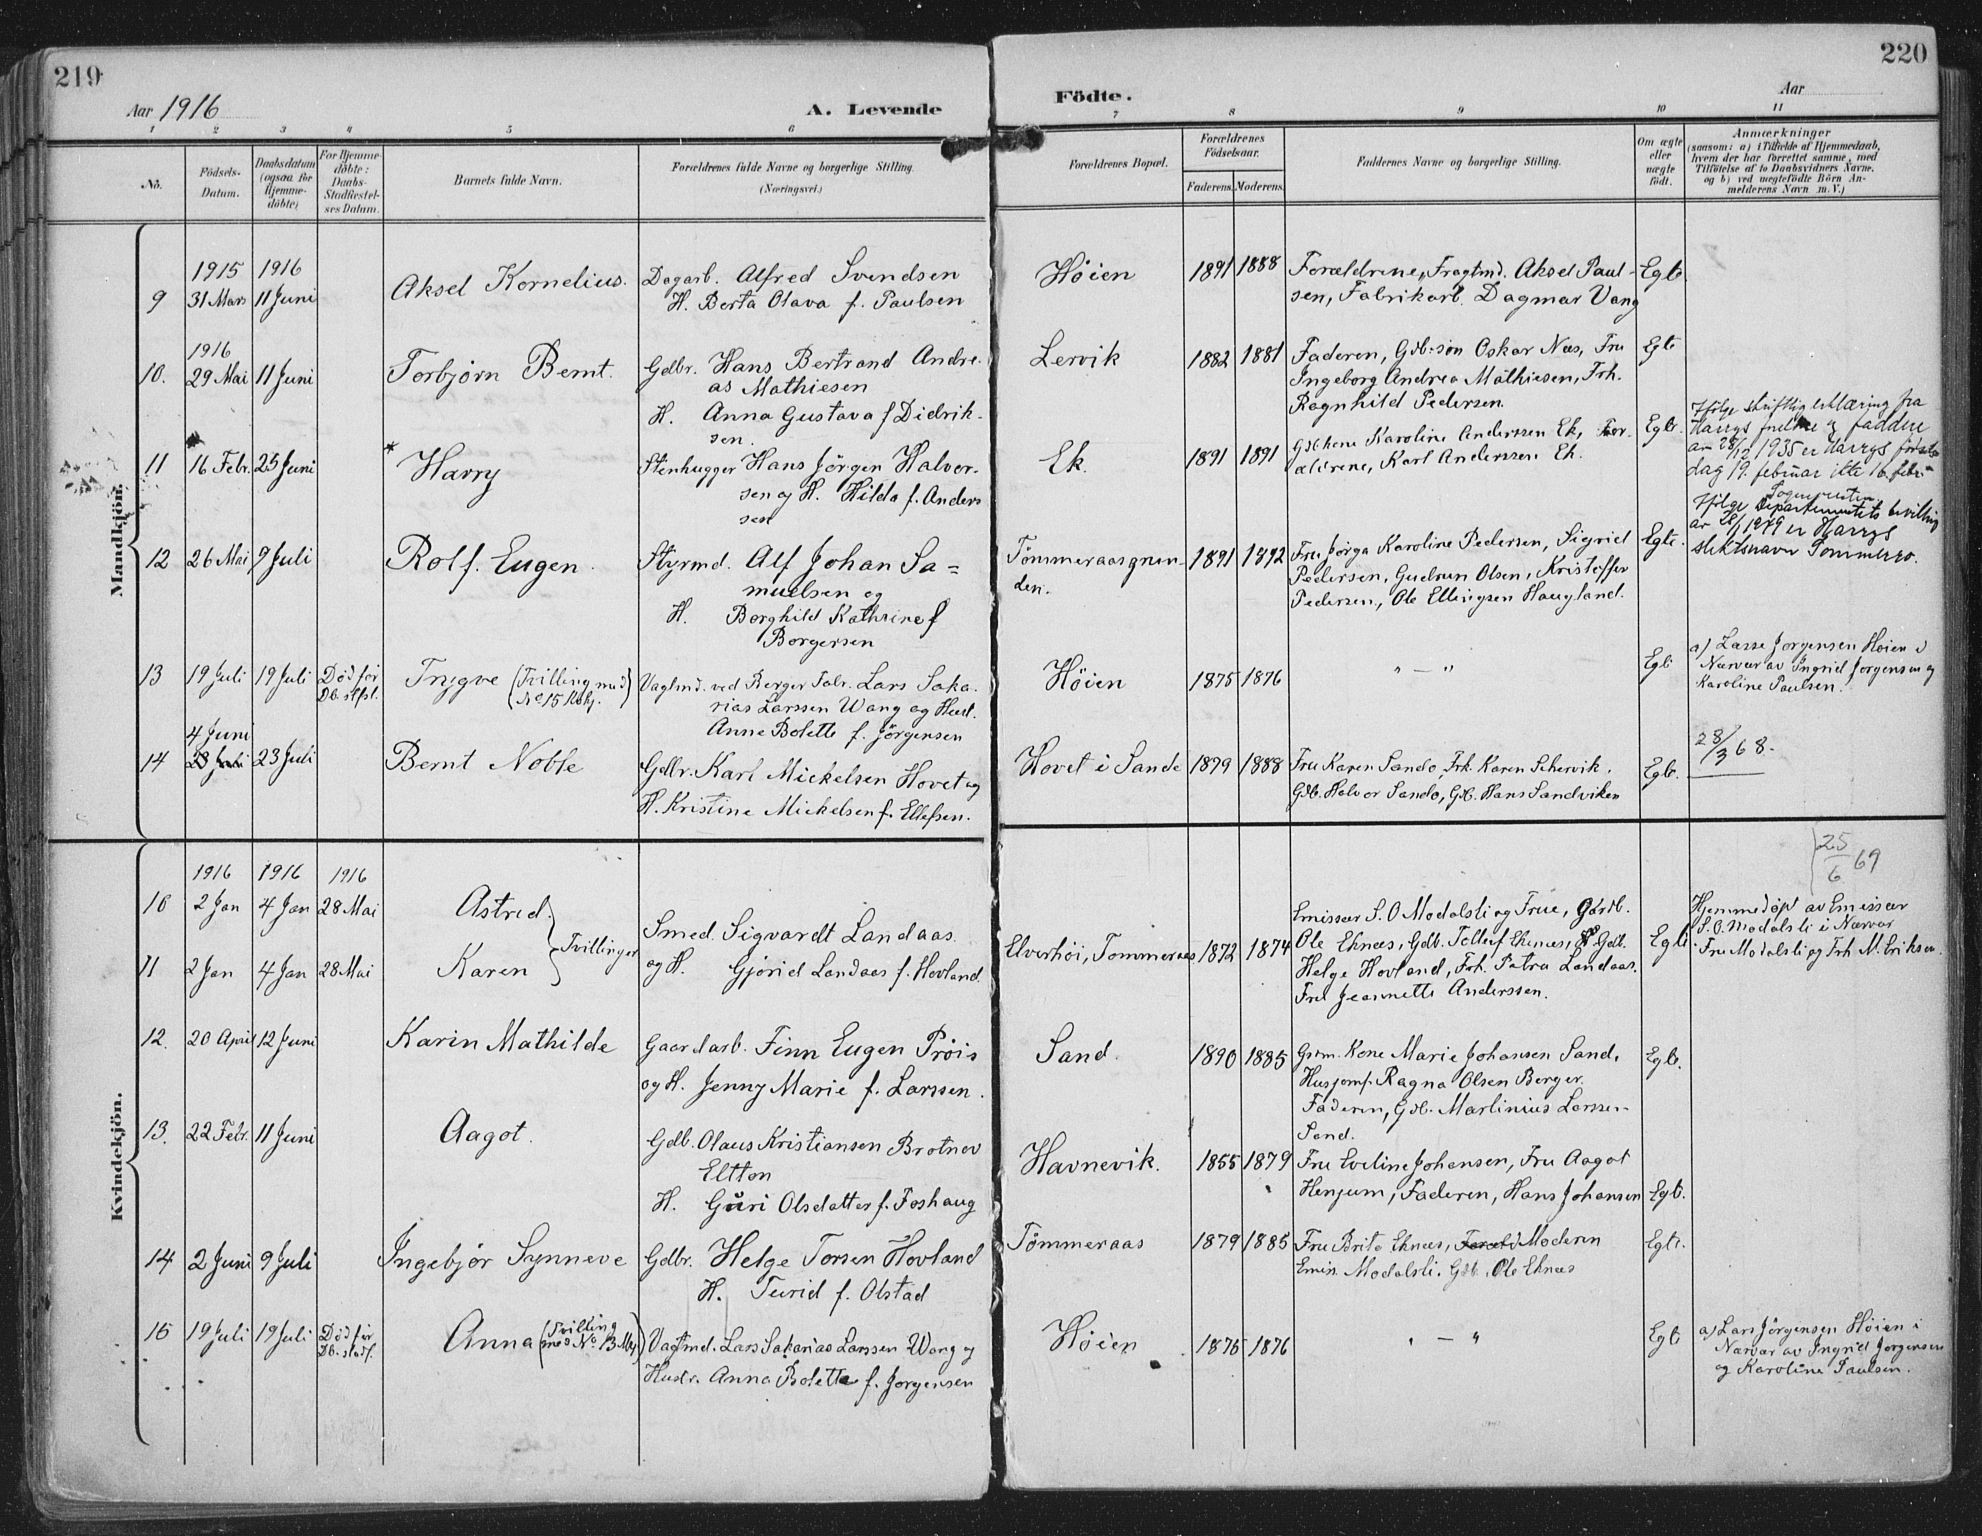 219
220
Aar 1916
A. Levende
Födte.
Aar
1 2 3 4 5 6 7 8 9 10 11
No.
Födsels-
Datum.
Daabsdatum
(ogsaa for
Hjemme-
döbte)
For Hjemme-
döbte:
Daabs-
Stadfæstel-
ses Datum.
Barnets fulde Navn.
Forældrenes fulde Navne og borgerlige Stilling.
(Næringsvei.)
Forældrenes Bopæl.
Forældrenes
Födselsaar.
Faderens. Moderens.
Faddernes Navne og borgerlige Stilling.
Om ægte
eller
uægte
födt.
Anmærkninger
(saasom: a) i Tilfælde af Hjemmedaab,
hvem der har forrettet samme, med
Tilföielse af to Daabsvidners Navne.
og b) ved uægtefödte Börn An-
melderens Navn m. V.)
Mandkjön.
1915 1916
9 31 Mars 11 Juni
Aksel Kornelius.
Dagarb. Alfred Svendsen
H. Berta Olava f. Paulsen
Høien
1891 1888
Forældrene, Fragtmd. Aksel Paul-
sen, Fabrikarb. Dagmar Vang
Egte.
1916
10. 29 Mai 11 Juni
Torbjørn Bernt.
Gdbr. Hans Bertrand Andre-
as Mathiesen
H. Anna Gustava f Didrik-
sen.
Lervik
1882 1881
Faderen, Gdb.søn Oskar Næs, Fru
Ingeborg Andrea Mathiesen, Frk.
Ragnhild Pedersen.
Egte
11 16 Febr. 25 Juni
* Harry
Stenhugger Hans Jörgen Halvor-
sen og H. Hilda f. Anders
sen
Ek.
1891 1891
Gdb.kone Karoline Anderssen Ek, For-
ældrene, Karl Anderssen Ek.
Egte.
Ifölge skriftlig erklæring fra
Harrys foreldre og faddere
av 28/12 1935 er Harrys födsels
dag 19. februar ikke 16. febr.
Ifölge Departementets bevilling
er Harrys
slektsnavn Tommeraas.
12 26 Mai 9 Juli
Rolf. Eugen.
Styrmd. Alf Johan Sa=
muelsen og
H. Borghild Kathrine f
Borgersen
Tömmeraasgrun-
den.
1891 1892
Fru Jörga Karoline Pedersen, Sigrid
Pedersen, Gudrun Olsen, Kristoffer
Pedersen, Ole Ellingsen Haugland.
Egte.
13 19 Juli 19 Juli Död för
Db. stfst.
Trygve (Tvilling med
No 15 Kvkj.)
Vagtmd. ved Berger Fabr. Lars Saka-
rias Larssen Wang og Hust.
Anne Bolette f. Jörgensen
Høien
1875 1876
" — "
Egte
a) Lasse Jorgensen Høien i
Nærvær av Ingrid Jorgensen og
Karoline Paulsen.
4 Juni
14 23 Juli 23 Juli
Bernt Noble
Gdbr. Karl Mickelsen Hovet og
H. Kristine Mickelsen f. Ellefsen.
Hovet i Sande
1879 1888
Fru Karen Sando, Frk. Karen Schervik,
Gdb. Halvor Sando, Gdb. Hans Sandviken
Egte.
28/3 68.
Kvindekjön.
25/6 69
1916 1916 1916
10 2 Jan 4 Jan 28 Mai
Astrid.
11 2 Jan 4 Jan 28 Mai
Karen
Tvillinger
Smed. Sigvardt Landaas
og H. Gjörid Landaas f. Hovland.
Elverhöi, Tommeraas
1872 1874
Emissær S. O Modalsli og Frue, Gårdb.
Ole Eknæs, Gdb. Tollef Eknæs, Gdb.
Helge Hovland, Frk. Petra Landaas.
Frk Jeannette Anderssen.
Egte
Hjemmedöpt av Emissær
S. O. Modalsli i Nærvær
Fru Modalsli og Frk M. Eriksen.
12. 20 April 12 Juni
Karin Mathilde
Gaardarb. Finn Eugen Pröis
og H. Jenny Marie f. Larssen.
Sand.
1890 1885
Grm. Kone Marie Johansen Sand,
Husjomf. Ragna Olsen Berger.
Faderen, Gdb. Martinius Larssen
Sand.
Egte.
13. 22 Febr. 11 Juni
Aagot.
Gdb. Olaus Kristiansen Brotnov
Eltton
H. Guri Olsdatter f. Foshaug
Havnevik.
1855 1879
Fru Eveline Johansen, Fru Aagot
Henjum, Faderen, Hans Johansen
Egte.
14 2 Juni 9 Juli
Ingebjør Synneve
Gdbr. Helge Torsen Hovland
H. Turid f. Olstad
Tömmeraas
1879 1885
Fru Brita Eknæs, Moderen
Emis. Modalsli. Gdb. Ole Eknæs
Egte.
15 19 Juli 19 Juli Död för
Db. stadf.
Anna (Tvilling
med No. 13 Mkj.)
Vagtmd. Lars Sakarias Larssen Wang og
Hustr. Anna Bolette f. Jorgensen
Høien
1875 1876
" — "
Egte
a) Lars Jörgensen Høien i
Nærvær av Ingrid Jorgensen
og Karoline Paulsen.